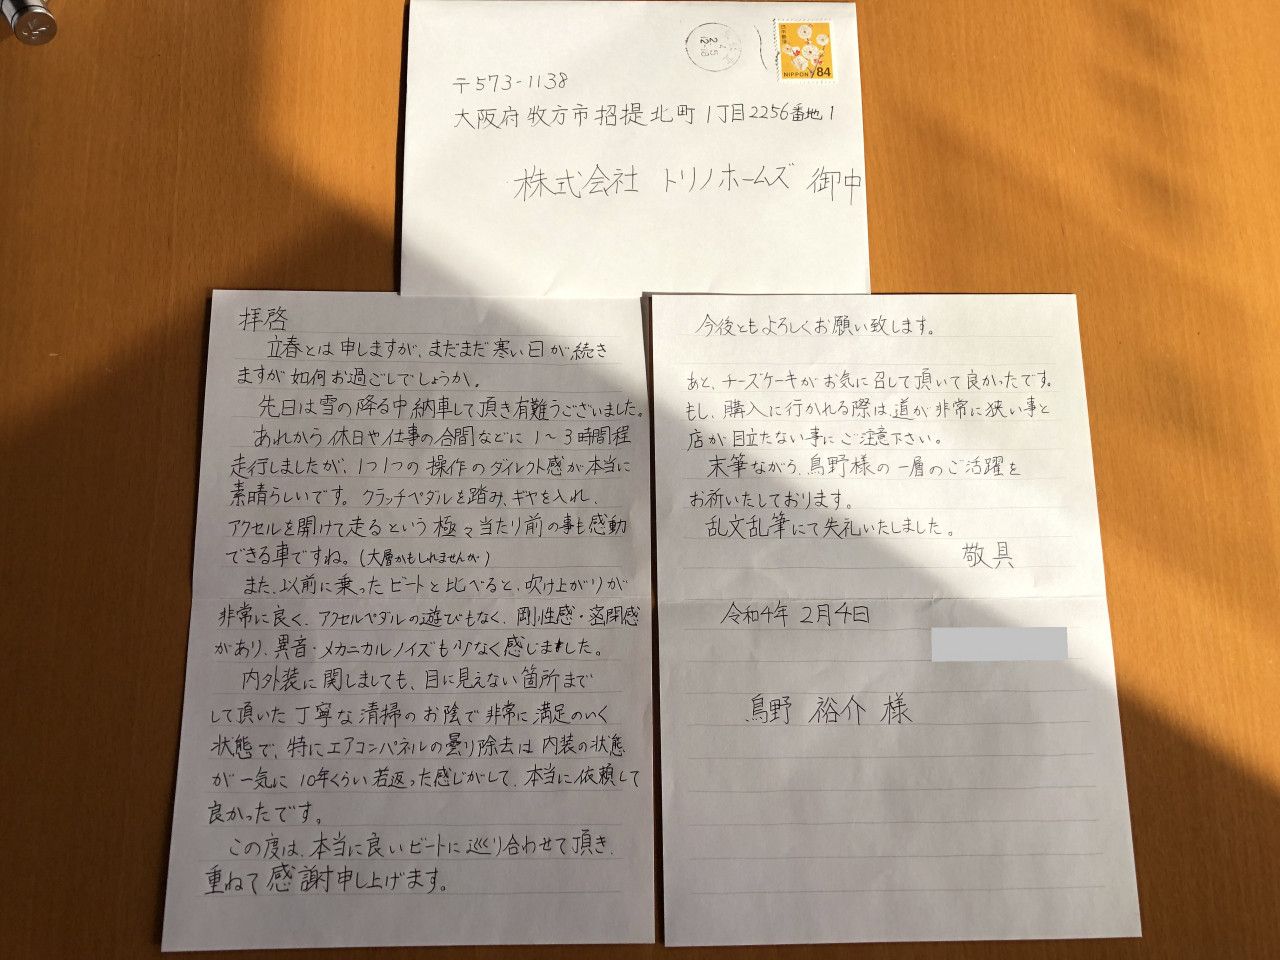 〒573-1138
大阪府牧方市招提北町1丁目2256番地1
株式会社 トリノホームズ 御中
NIPPON 84
拝啓
立春とは申しますが、まだまだ寒い日が続き
ますが如何お過ごしでしょうか。
先日は雪の降る中納車して頂き有難うございました。
あれから休日や仕事の合間などに1～3時間程
走行しましたが、1つ1つの操作のダイレクト感が本当に
素晴らしいです。クラッチペダルを踏み、ギヤを入れ、
アクセルを開けて走るという極々当たり前の事も感動
できる車ですね。(大層かもしれませんが)
また、以前に乗ったビートと比べると、吹け上がりが
非常に良く、アクセルペダルの遊びもなく、剛性感・密閉感
があり、異音・メカニカルノイズも少なく感じました。
内外装に関しましても、目に見えない箇所まで
して頂いた丁寧な清掃のお陰で非常に満足のいく
状態で、特にエアコンパネルの曇り除去は内装の状態
が一気に10年くらい若返った感じがして、本当に依頼して
良かったです。
この度は、本当に良いビートに巡り合わせて頂き、
重ねて感謝申し上げます。
今後ともよろしくお願い致します。
あと、チーズケーキがお気に召して頂いて良かったです。
もし、購入に行かれる際は道が非常に狭い事と
店が目立たない事にご注意下さい。
末筆ながら、鳥野様の一層のご活躍を
お祈いたしております。
乱文乱筆にて失礼いたしました。
敬具
令和4年 2月4日
鳥野 裕介 様